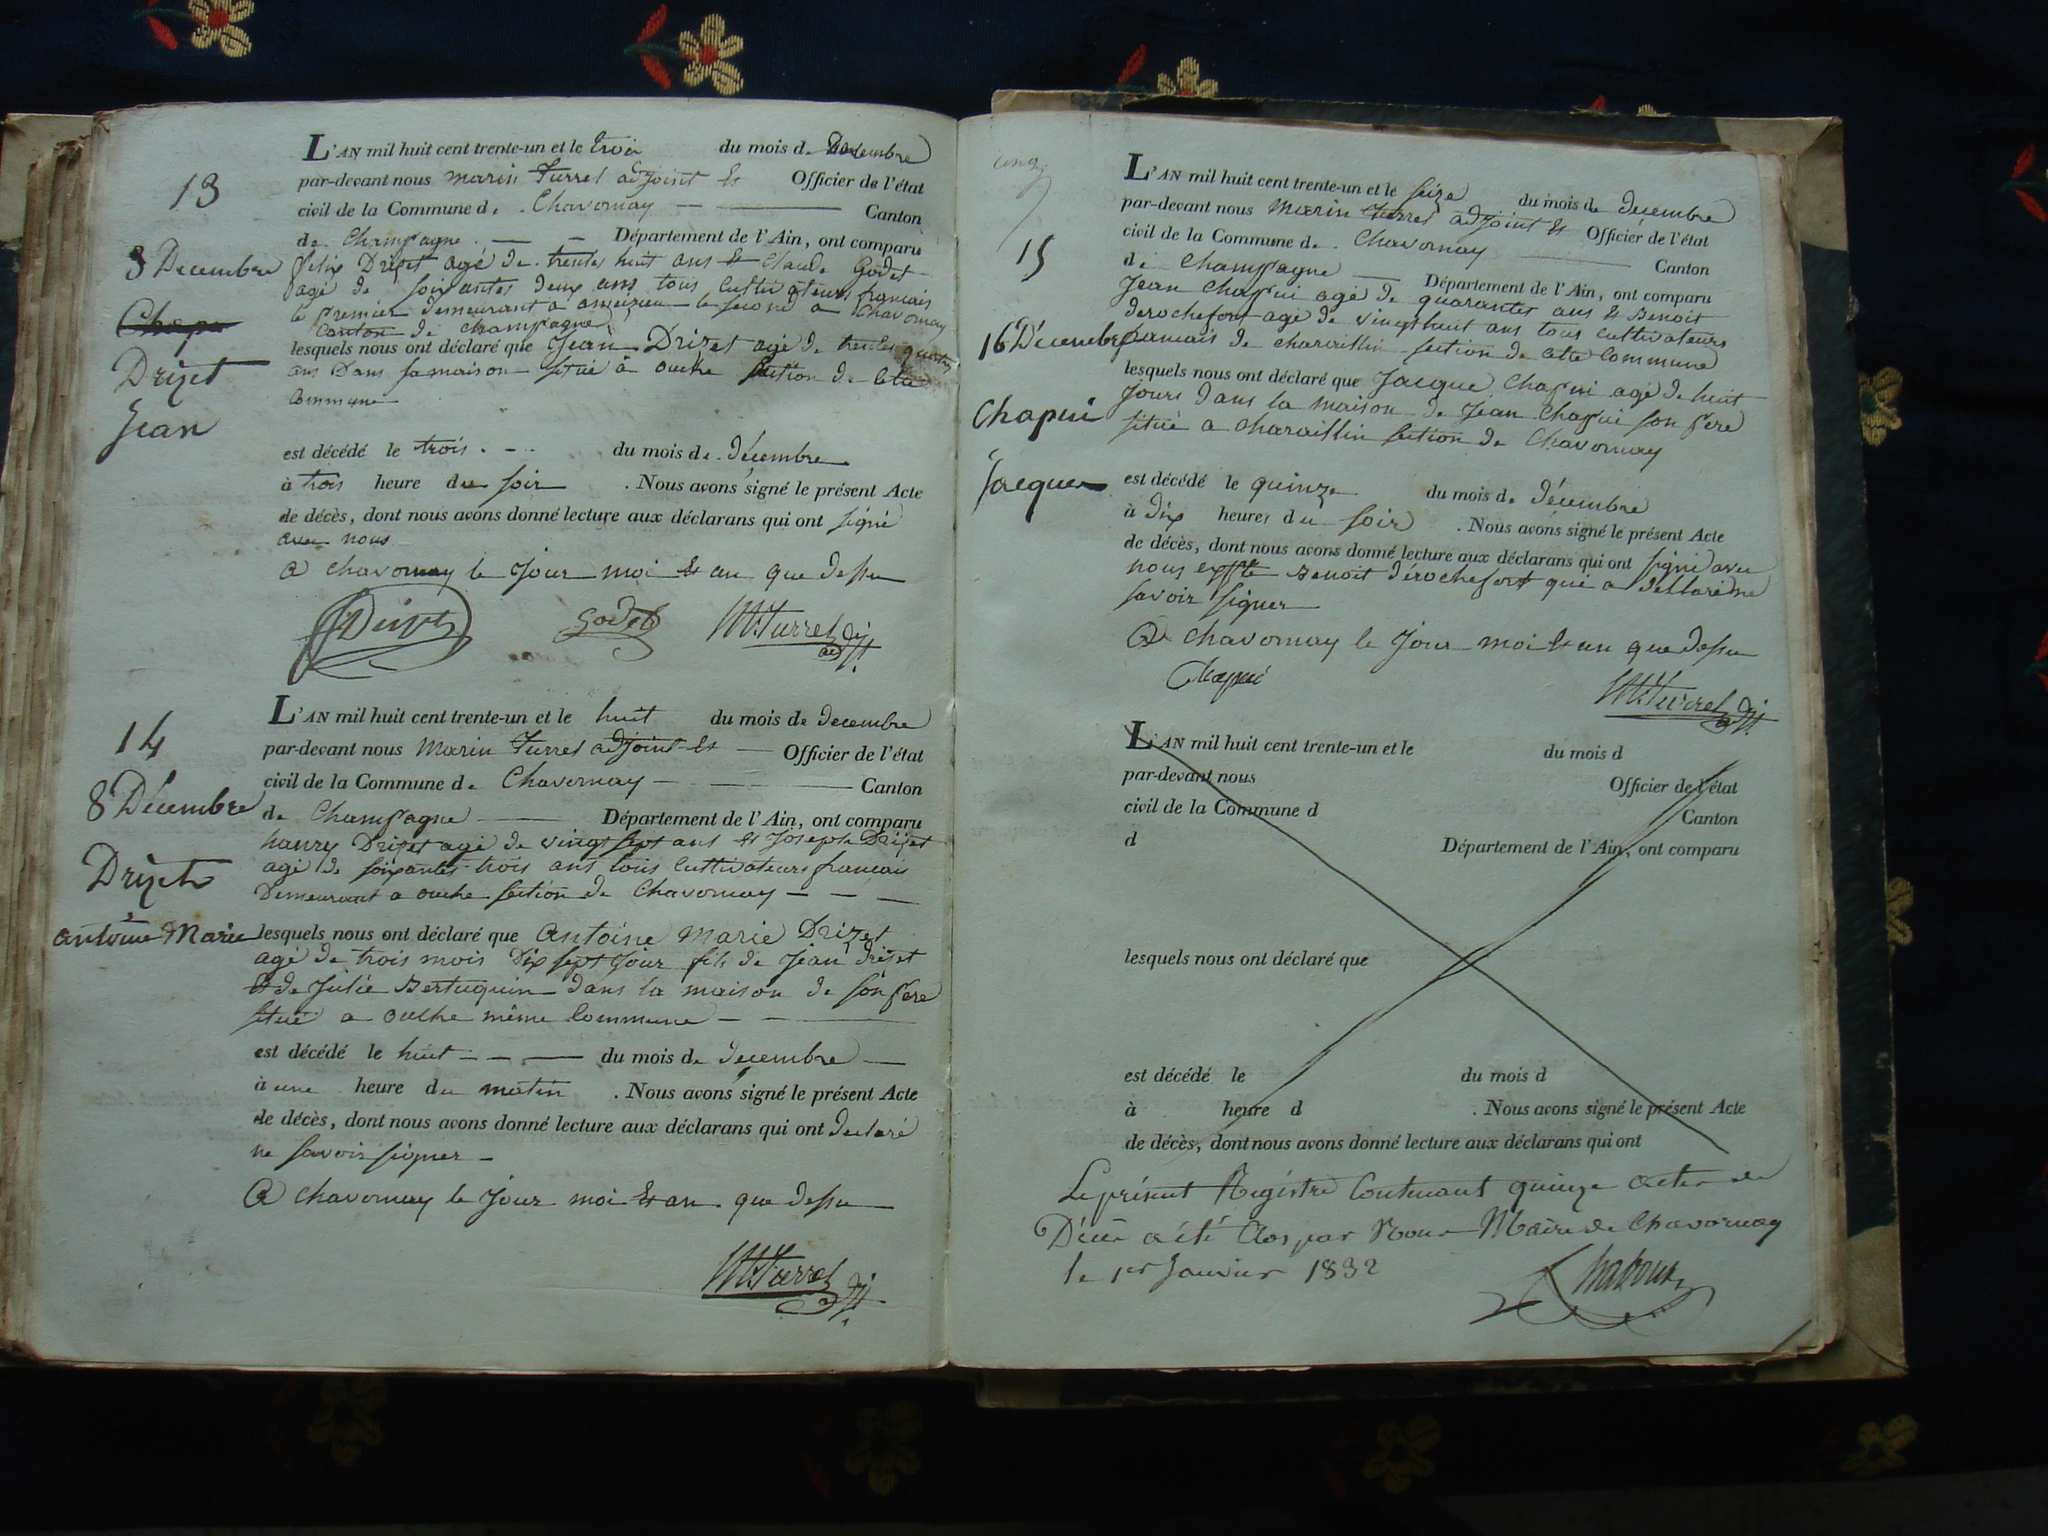 13
3 Decembre
Chapu
Drizet
Jean
L'AN mil huit cent trente-un et le trois du mois de Decembre
par-devant nous Marin Turrel adjoint & Officier de l'état
civil de la Commune de Chavornay Canton
de Champagne Département de l'Ain, ont comparu
felix Drizet agé de trentes huit ans & Claude Godet
agé de soixantes deux ans tous cultivateurs francais
le premier demeurant a ameizieu le second a Chavornay
Canton de Champagne
lesquels nous ont déclaré que Jean Drizet agé de trentes quatre
ans Dans sa maison situé à ouche section de cette
Commune
est décédé le trois du mois de décembre
à trois heure du soir . Nous avons signé le présent Acte
de décès, dont nous avons donné lecture aux déclarans qui ont signé
avec nous
a chavornay le jour moi & an que dessu
Drizet Godet M. Turrel adjt.
14
8 Décembre
Drizet
antoine Marie
L'AN mil huit cent trente-un et le huit du mois de Decembre
par-devant nous Marin Turrel adjoint & Officier de l'état
civil de la Commune de Chavornay Canton
de Champagne Département de l'Ain, ont comparu
hanry Drizet agé de vingt sept ans & Joseph Drizet
agé de soixantes trois ans tous cultivateurs francais
Demeurant a ouche section de Chavornay
lesquels nous ont déclaré que Antoine Marie Drizet
agé de trois mois Dix sept jour fils de jean drizet
& de Julie Bertuquin dans la maison de son pere
situé a ouche même Commune
est décédé le huit du mois de decembre
à une heure du matin . Nous avons signé le présent Acte
de décès, dont nous avons donné lecture aux déclarans qui ont declaré
ne savoir signer
a chavornay le jour moi & an que dessu
M. Turrel adjt.
15
16 Décembre
Chapui
Jacques
L'AN mil huit cent trente-un et le seize du mois de decembre
par-devant nous Marin Turrel adjoint & Officier de l'état
civil de la Commune de Chavornay Canton
de Champagne Département de l'Ain, ont comparu
Jean chapui agé de quarantes ans & Benoit
derochefort agé de vingt huit ans tous cultivateurs
francais de charaillin section de cette Commune
lesquels nous ont déclaré que Jacque Chapui agé de huit
jours dans la maison de Jean Chapui son pere
situé a charaillin section de Chavornay
est décédé le quinze du mois de décembre
à dix heures du soir . Nous avons signé le présent Acte
de décès, dont nous avons donné lecture aux déclarans qui ont signé avec
nous Benoit dérochefort qui a déclaré ne
savoir signer
a chavornay le jour moi & an que dessu
Chapui M. Turrel adjt
L'AN mil huit cent trente-un et le du mois d
par-devant nous Officier de l'état
civil de la Commune d Canton
d Département de l'Ain, ont comparu
lesquels nous ont déclaré que
est décédé le du mois d
à heure d . Nous avons signé le présent Acte
de décès, dont nous avons donné lecture aux déclarans qui ont
Le présent Régistre contenant quinze actes de
Décès a été clos par Nous Maire de Chavornay
le 1er Janvier 1832